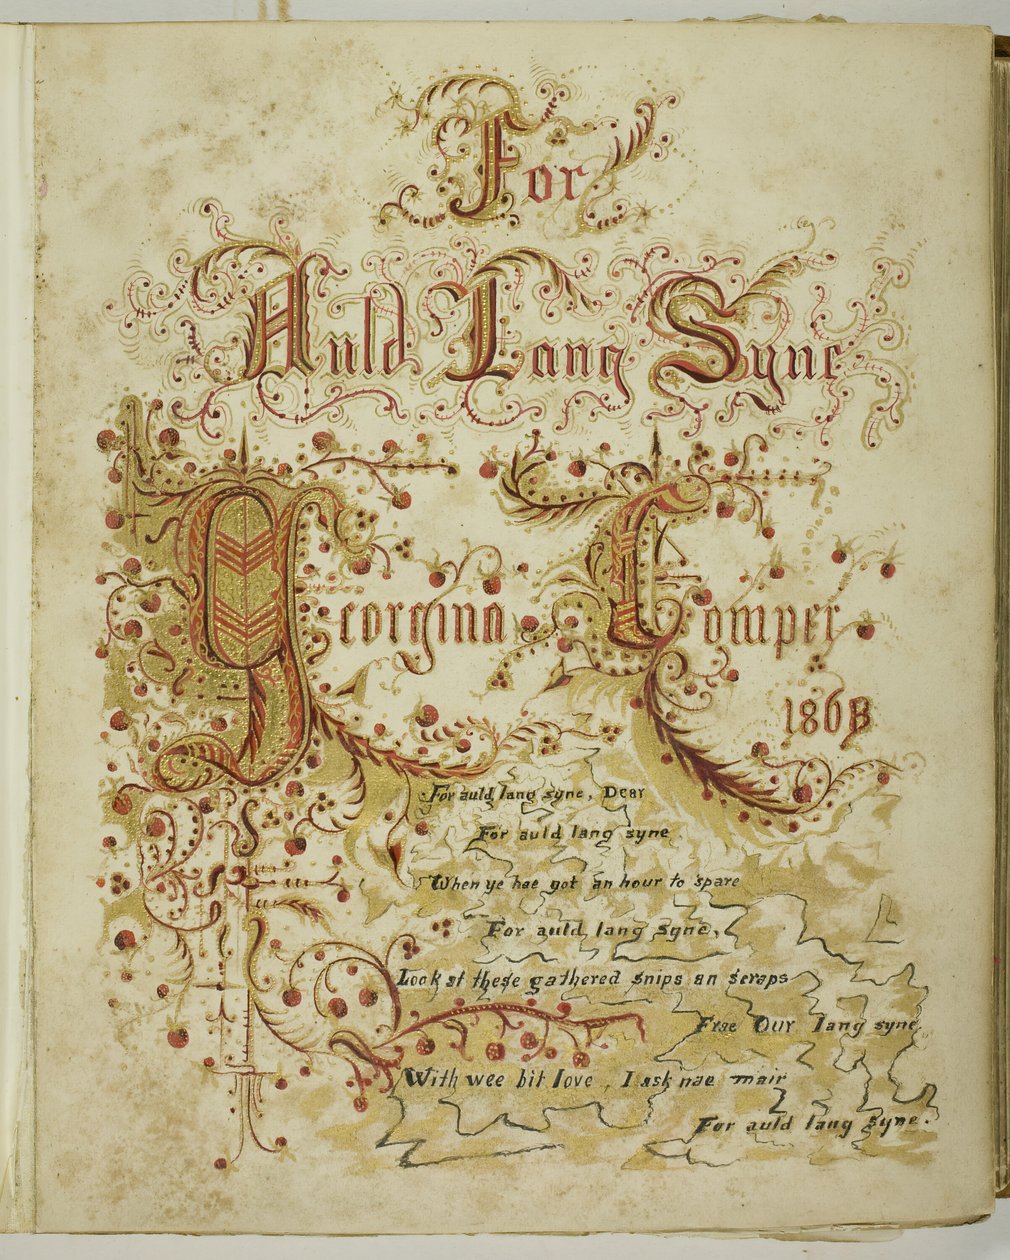 For
Auld Lang Syne
Georgina Comper
1868
For auld lang syne, Dear
For auld lang syne
When ye hae got an hour to spare
For auld lang syne,
Look at these gathered snips an scraps
Frae Our lang syne,
With wee bit love, I ask nae mair
For auld lang syne.